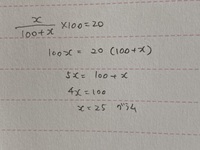 x/(100+x) ×100=20
100x = 20 (100+x)
5x = 100+x
4x =100
x = 25 グラム